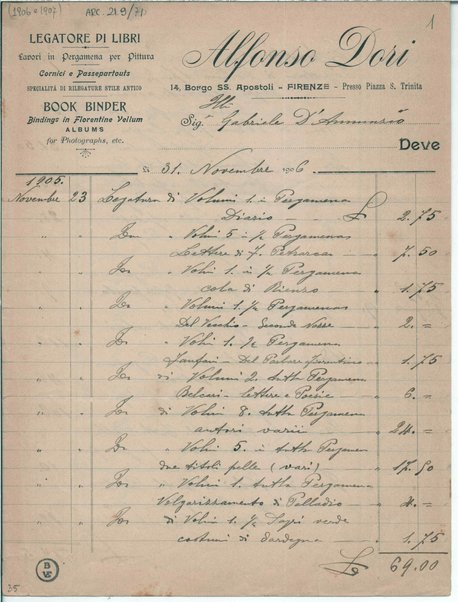 (1906 e 1907) ARC. 21.9/71
1
LEGATORE DI LIBRI
Lavori in Pergamena per Pittura
Cornici e Passepartouts
SPECIALITÀ DI RILEGATURE STILE ANTICO
BOOK BINDER
Bindings in Florentine Vellum
ALBUMS
for Photographs, etc.
Alfonso Dori
14, Borgo SS. Apostoli - FIRENZE - Presso Piazza S. Trinita
Ill
Sig. Gabriele D'Annunzio
Deve
Li 31. Novembre 1906.
1905.
Novembre 23 Legatura di Volumi 1. in Pergamena
Diario £ 2.75
" " " Volmi 5 in ½ Pergamenas
Lettere di F. Petrarca " 7.50
" " " Volmi 1. in ½ Pergamena
cola di Rienzo " 1.75
" " " Volumi 1. ½ Pergamenas
Del Vecchio - Seconde Nozze " 2. =
" " " Volmi 1. ½ Pergamena
Fanfani - Del Parlare Fiorentino " 1.75
" " di Volumi 2. tutta Pergamena
Belcari - Lettere e Poesie " 6. =
" " di Volmi 8. tutta Pergamena
autori varii " 24. =
" " " Volmi 5. in tutta Pergamen
due titoli pelle (vari) " 17.50
" " " Volmi 1. tutta Pergamena
Volgarizzamento di Palladio " 4. =
" " di Volmi 1. ½ Sagrì verde
costumi di Sardegna " 1.75
£ 69.00
B
V E
35